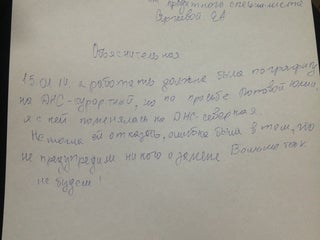 от кредитного специалиста
Сергеевой
Объяснительная
15.01.10, я работать должна была по графику
на ДНС-курортный, но по просьбе Юлии,
я с ней поменялась на ДНС-северная.
Не могла ей отказать, ошибка была в том, что
не предупредили никого о замене Больше так
не будем!